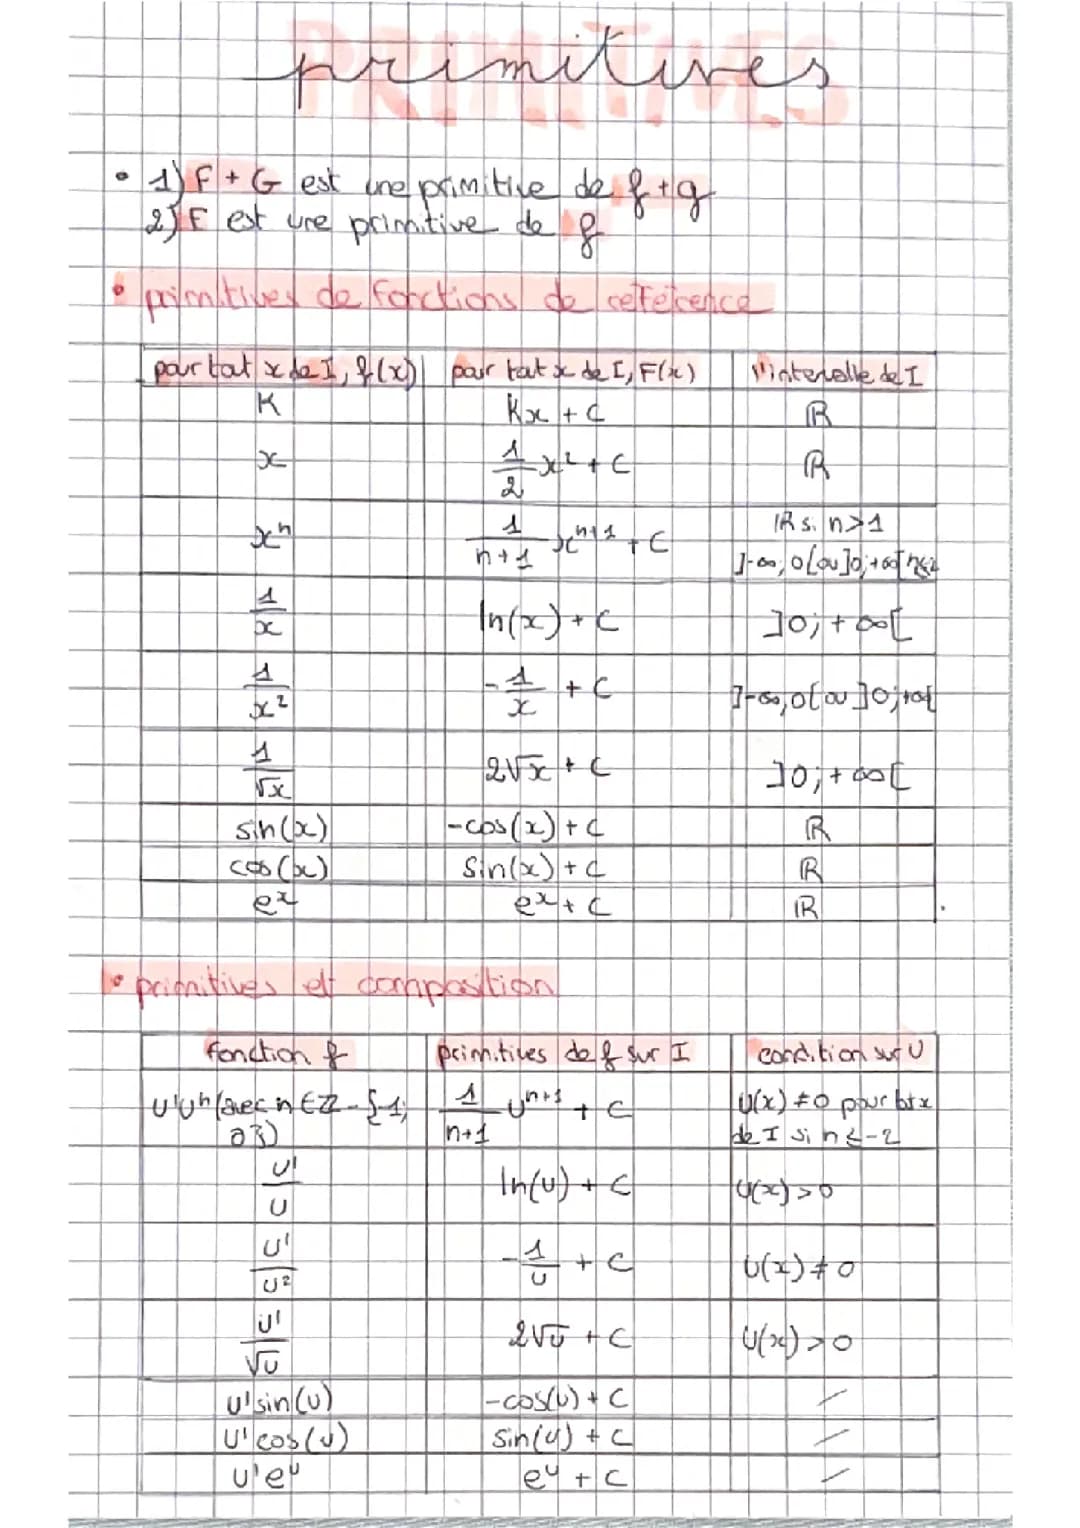 PRIMITIVES
primitives
• 1) F + G est une primitive de f + g
2) F est une primitive de f
• primitives de fonctions de reference
pour tout x de I, f(x) | pour tout x de I, F(x) | l'intervalle de I
K | Kx + C | ℝ
x | 1/2 x² + C | ℝ
xⁿ | 1/(n+1) xⁿ⁺¹ + C | ℝ si n>1
]-∞; 0[ ou ]0; +∞[
1/x | ln(x) + C | ]0; +∞[
1/x² | -1/x + C | ]-∞, 0[ ou ]0; +∞[
1/√x | 2√x + C | ]0; +∞[
sin(x) | -cos(x) + C | ℝ
cos(x) | Sin(x) + C | ℝ
eˣ | eˣ + C | ℝ
• primitives et composition
fonction f | primitives de f sur I | condition sur U
U'Uⁿ (avec n ∈ ℤ - {-1; 0}) | 1/(n+1) Uⁿ⁺¹ + C | U(x) ≠ 0 pour tt x
de I si n ≤ -2
U'/U | ln(U) + C | U(x) > 0
U'/U² | -1/U + C | U(x) ≠ 0
U'/√U | 2√U + C | U(x) > 0
U'sin(U) | -cos(U) + C | /
U'cos(U) | sin(U) + C | /
U'eᵁ | eᵁ + C | /